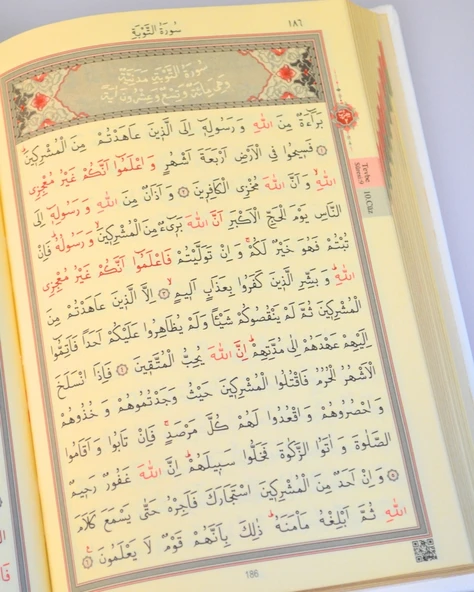 سُورَةُ التَّوْبَةِ
١٨٦
سُورَةُ التَّوْبَةِ مَدَنِيَّةٌ
وَهِيَ مِائَةٌ وَتِسْعٌ وَعِشْرُونَ اٰيَةً
بَرَٓاءَةٌ مِنَ اللّٰهِ وَرَسُولِهٖٓ اِلَى الَّذٖينَ عَاهَدْتُمْ مِنَ الْمُشْرِكٖينَ
﴿١﴾ فَسٖيحُوا فِي الْاَرْضِ اَرْبَعَةَ اَشْهُرٍ وَاعْلَمُٓوا اَنَّكُمْ غَيْرُ مُعْجِزِي
اللّٰهِ وَاَنَّ اللّٰهَ مُخْزِي الْكَافِرٖينَ ﴿٢﴾ وَاَذَانٌ مِنَ اللّٰهِ وَرَسُولِهٖٓ اِلَى
النَّاسِ يَوْمَ الْحَجِّ الْاَكْبَرِ اَنَّ اللّٰهَ بَرٖٓيءٌ مِنَ الْمُشْرِكٖينَ وَرَسُولُهُ فَاِنْ
تُبْتُمْ فَهُوَ خَيْرٌ لَكُمْ وَاِنْ تَوَلَّيْتُمْ فَاعْلَمُٓوا اَنَّكُمْ غَيْرُ مُعْجِزِي
اللّٰهِ وَبَشِّرِ الَّذٖينَ كَفَرُوا بِعَذَابٍ اَلٖيمٍ ﴿٣﴾ اِلَّا الَّذٖينَ عَاهَدْتُمْ مِنَ
الْمُشْرِكٖينَ ثُمَّ لَمْ يَنْقُصُوكُمْ شَيْـًٔا وَلَمْ يُظَاهِرُوا عَلَيْكُمْ اَحَدًا فَاَتِمُّٓوا
اِلَيْهِمْ عَهْدَهُمْ اِلٰى مُدَّتِهِمْ اِنَّ اللّٰهَ يُحِبُّ الْمُتَّقٖينَ ﴿٤﴾ فَاِذَا انْسَلَخَ
الْاَشْهُرُ الْحُرُمُ فَاقْتُلُوا الْمُشْرِكٖينَ حَيْثُ وَجَدْتُمُوهُمْ وَخُذُوهُمْ
وَاحْصُرُوهُمْ وَاقْعُدُوا لَهُمْ كُلَّ مَرْصَدٍ فَاِنْ تَابُوا وَاَقَامُوا
الصَّلٰوةَ وَاٰتَوُا الزَّكٰوةَ فَخَلُّوا سَبٖيلَهُمْ اِنَّ اللّٰهَ غَفُورٌ رَحٖيمٌ
﴿٥﴾ وَاِنْ اَحَدٌ مِنَ الْمُشْرِكٖينَ اسْتَجَارَكَ فَاَجِرْهُ حَتّٰى يَسْمَعَ كَلَامَ
اللّٰهِ ثُمَّ اَبْلِغْهُ مَأْمَنَهُ ذٰلِكَ بِاَنَّهُمْ قَوْمٌ لَا يَعْلَمُونَ ﴿٦﴾
Tevbe
Sûresi: 9
10.Cüz
186